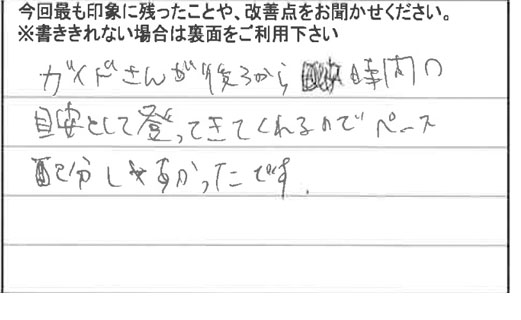 今回最も印象に残ったことや、改善点をお聞かせください。
※書ききれない場合は裏面をご利用下さい
ガイドさんが後ろから 時間の
目安として登ってきてくれるのでペース
配分しやすかったです.